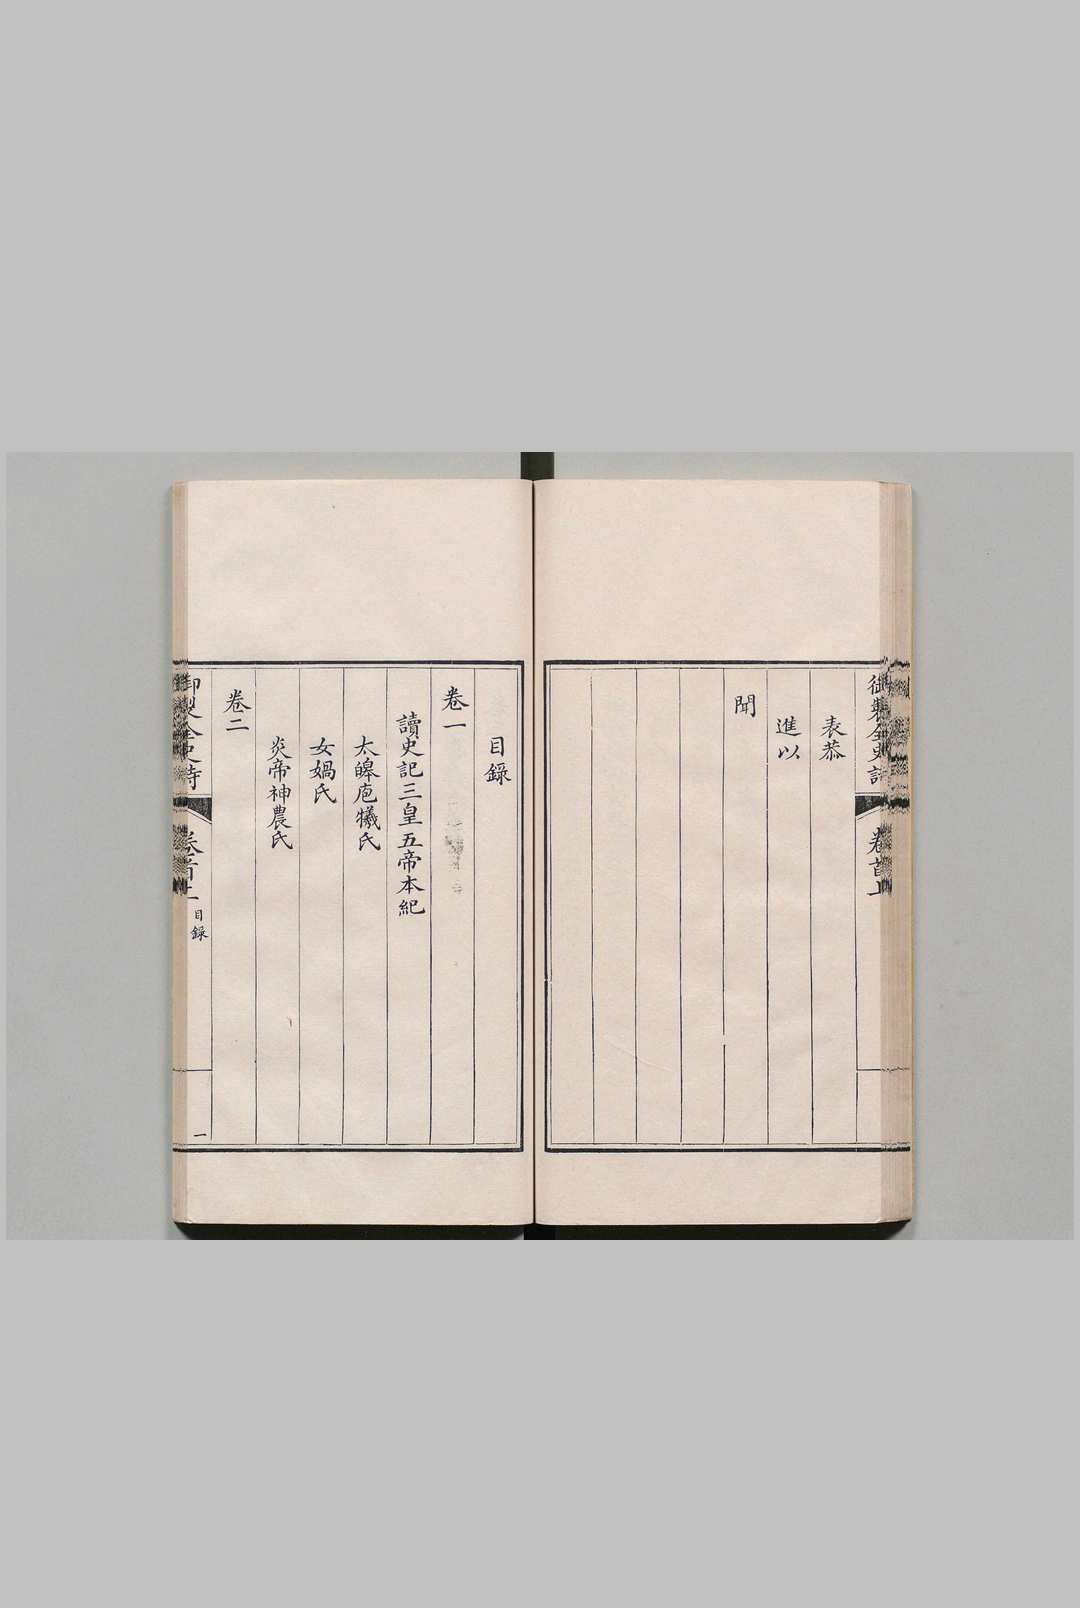 御製全史詩
卷首上
表恭
進以
聞
目錄
卷一
讀史記三皇五帝本紀
太皞庖犧氏
女媧氏
炎帝神農氏
卷二
御製全史詩
卷首上
目錄
一